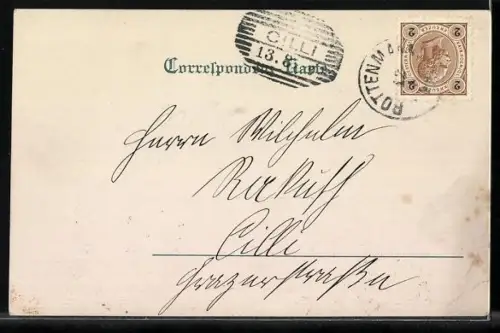 CILLI
13. 8.
Correspondenz-Karte
ROTTENMANN
2 2
2 2
Herrn Wilhelm
Rakusch
Cilli
Grazerstraße